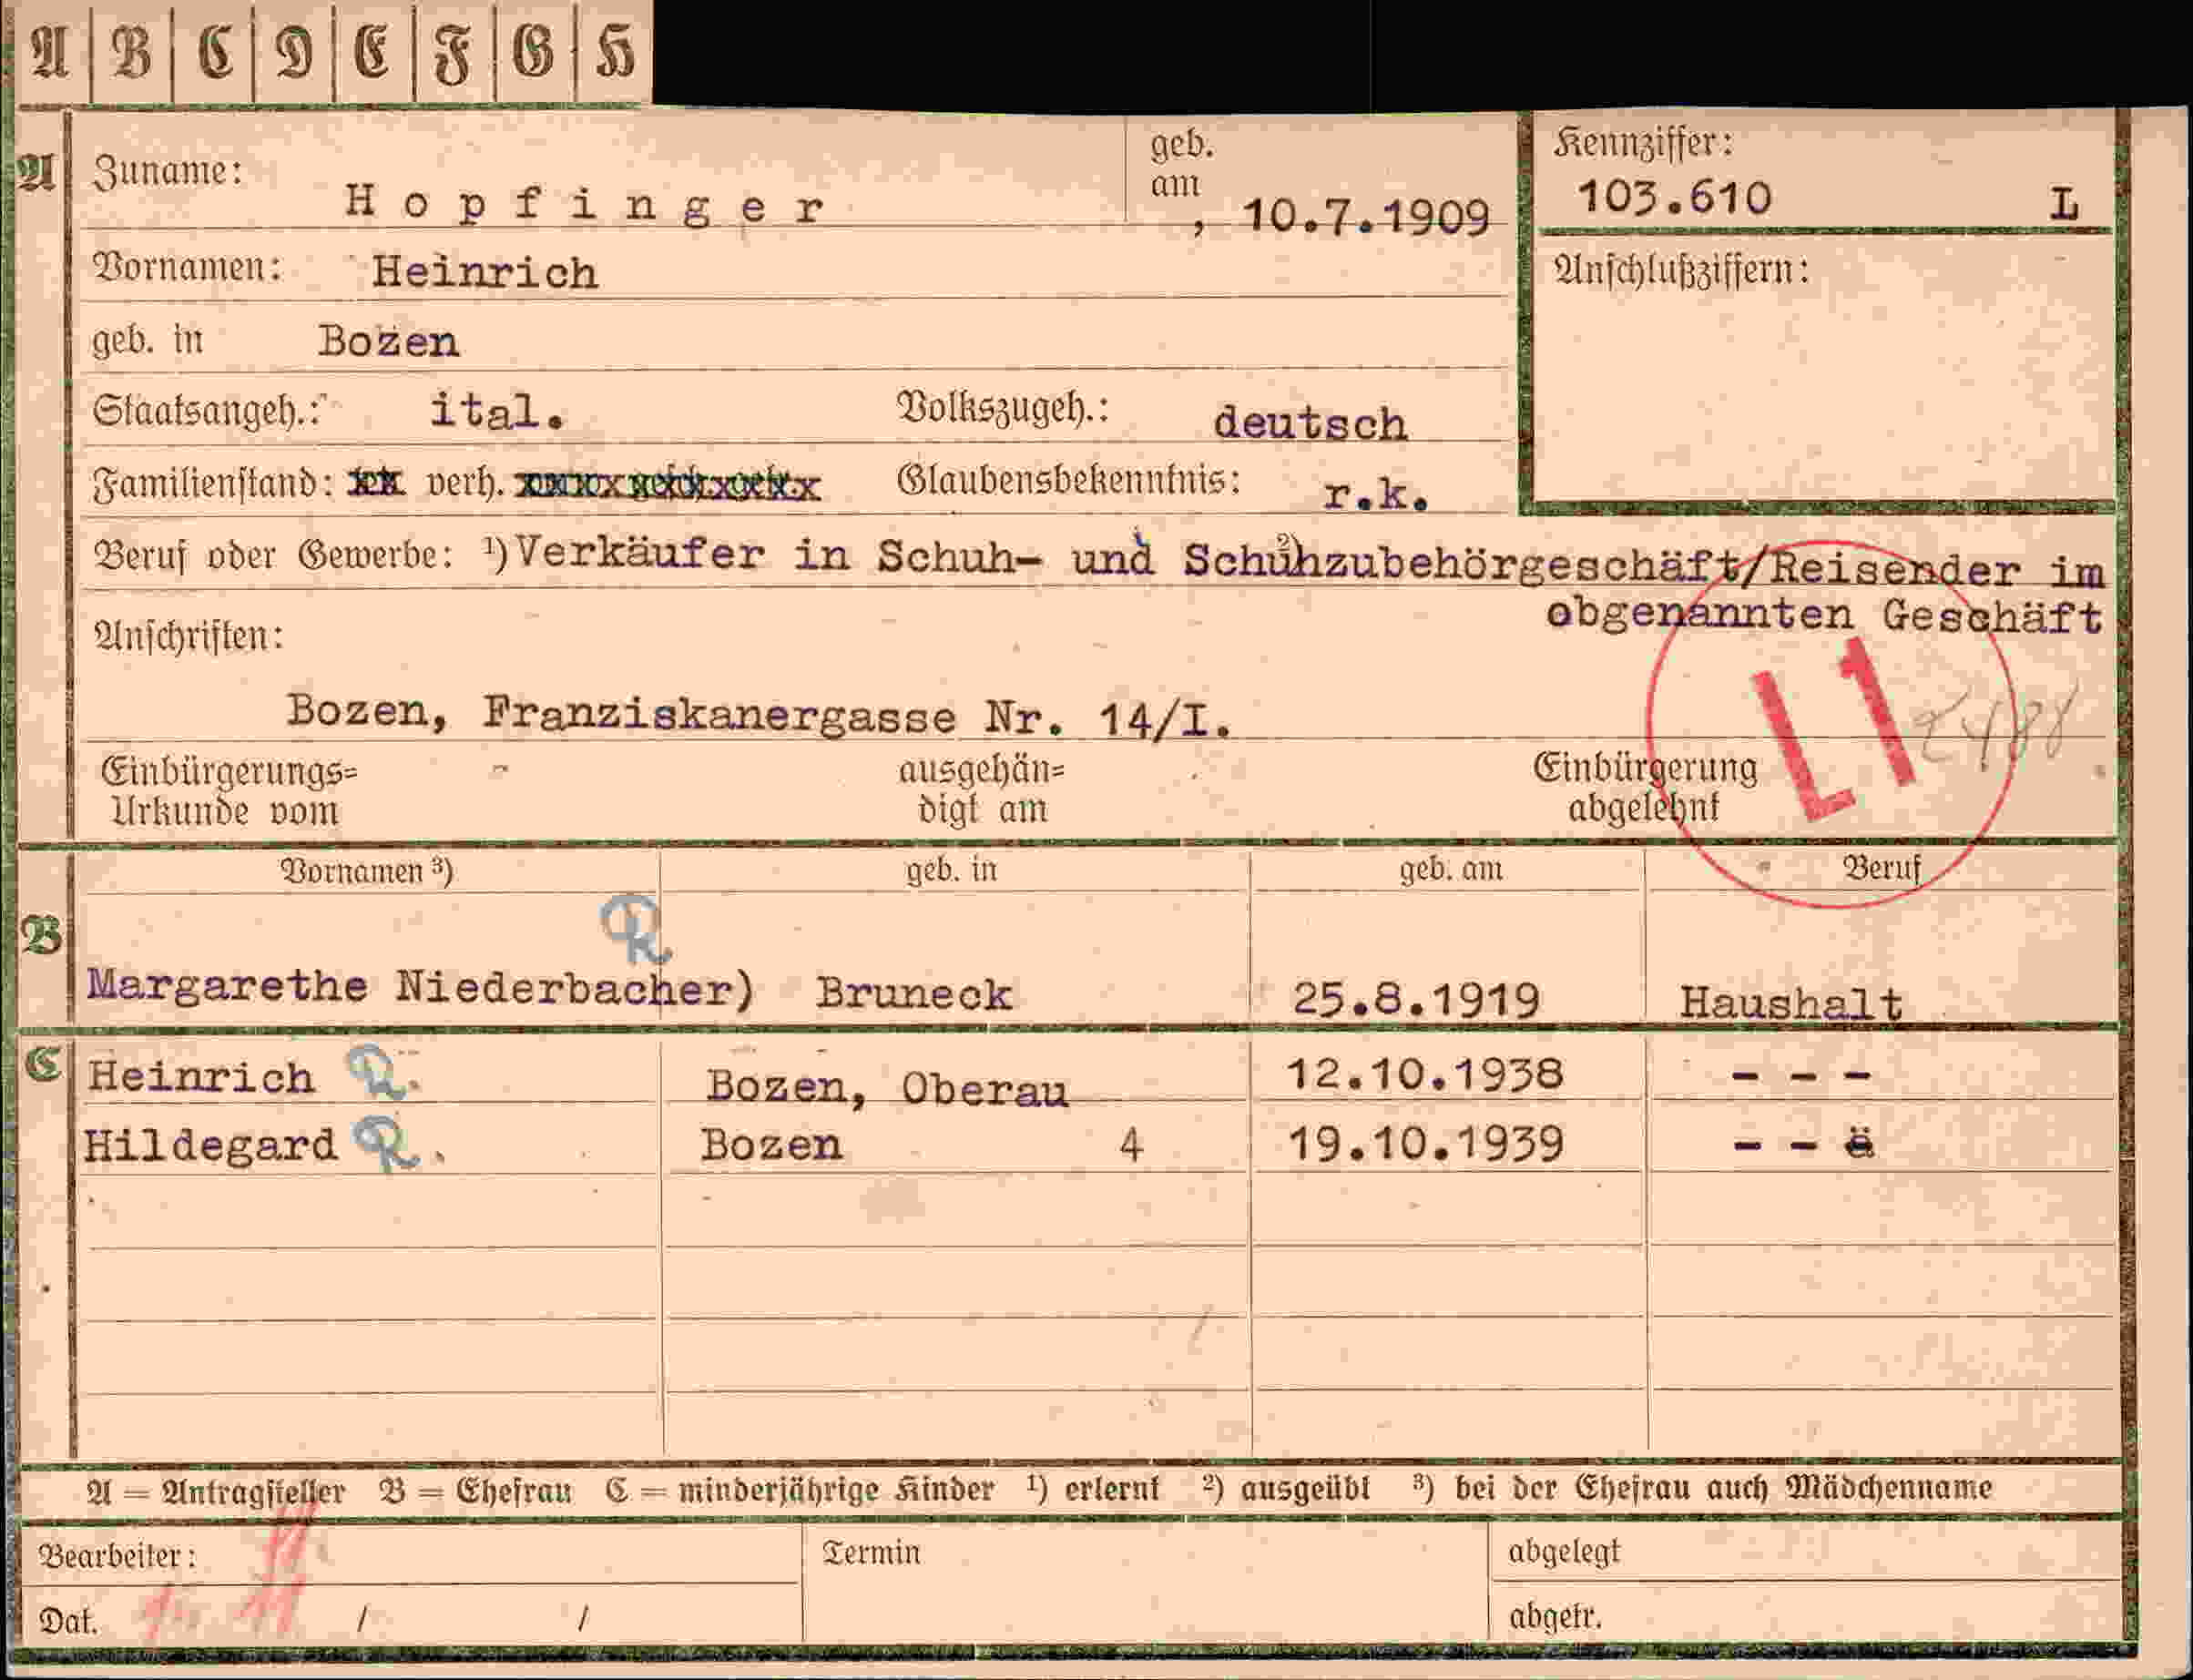 A B C D E F G H
A Zuname: Hopfinger geb. am , 10.7.1909 Kennziffer: 103.610 L
Vornamen: Heinrich Anschlußziffern:
geb. in Bozen
Staatsangeh.: ital. Volkszugeh.: deutsch
Familienstand: verh. Glaubensbekenntnis: r.k.
Beruf oder Gewerbe: ¹) Verkäufer in Schuh- und ²) Schuhzubehörgeschäft/Reisender im
obgenannten Geschäft
Anschriften:
L1
Bozen, Franziskanergasse Nr. 14/I.
Einbürgerungs= ausgehän= Einbürgerung
Urkunde vom digt am abgelehnt
Vornamen ³) geb. in geb. am Beruf
B
Margarethe Niederbacher) Bruneck 25.8.1919 Haushalt
C Heinrich R. Bozen, Oberau 12.10.1938 - - -
Hildegard R. Bozen 4 19.10.1939 - - -
A = Antragsteller B = Ehefrau C = minderjährige Kinder ¹) erlernt ²) ausgeübt ³) bei der Ehefrau auch Mädchenname
Bearbeiter: Termin abgelegt
Dat. / / abgetr.